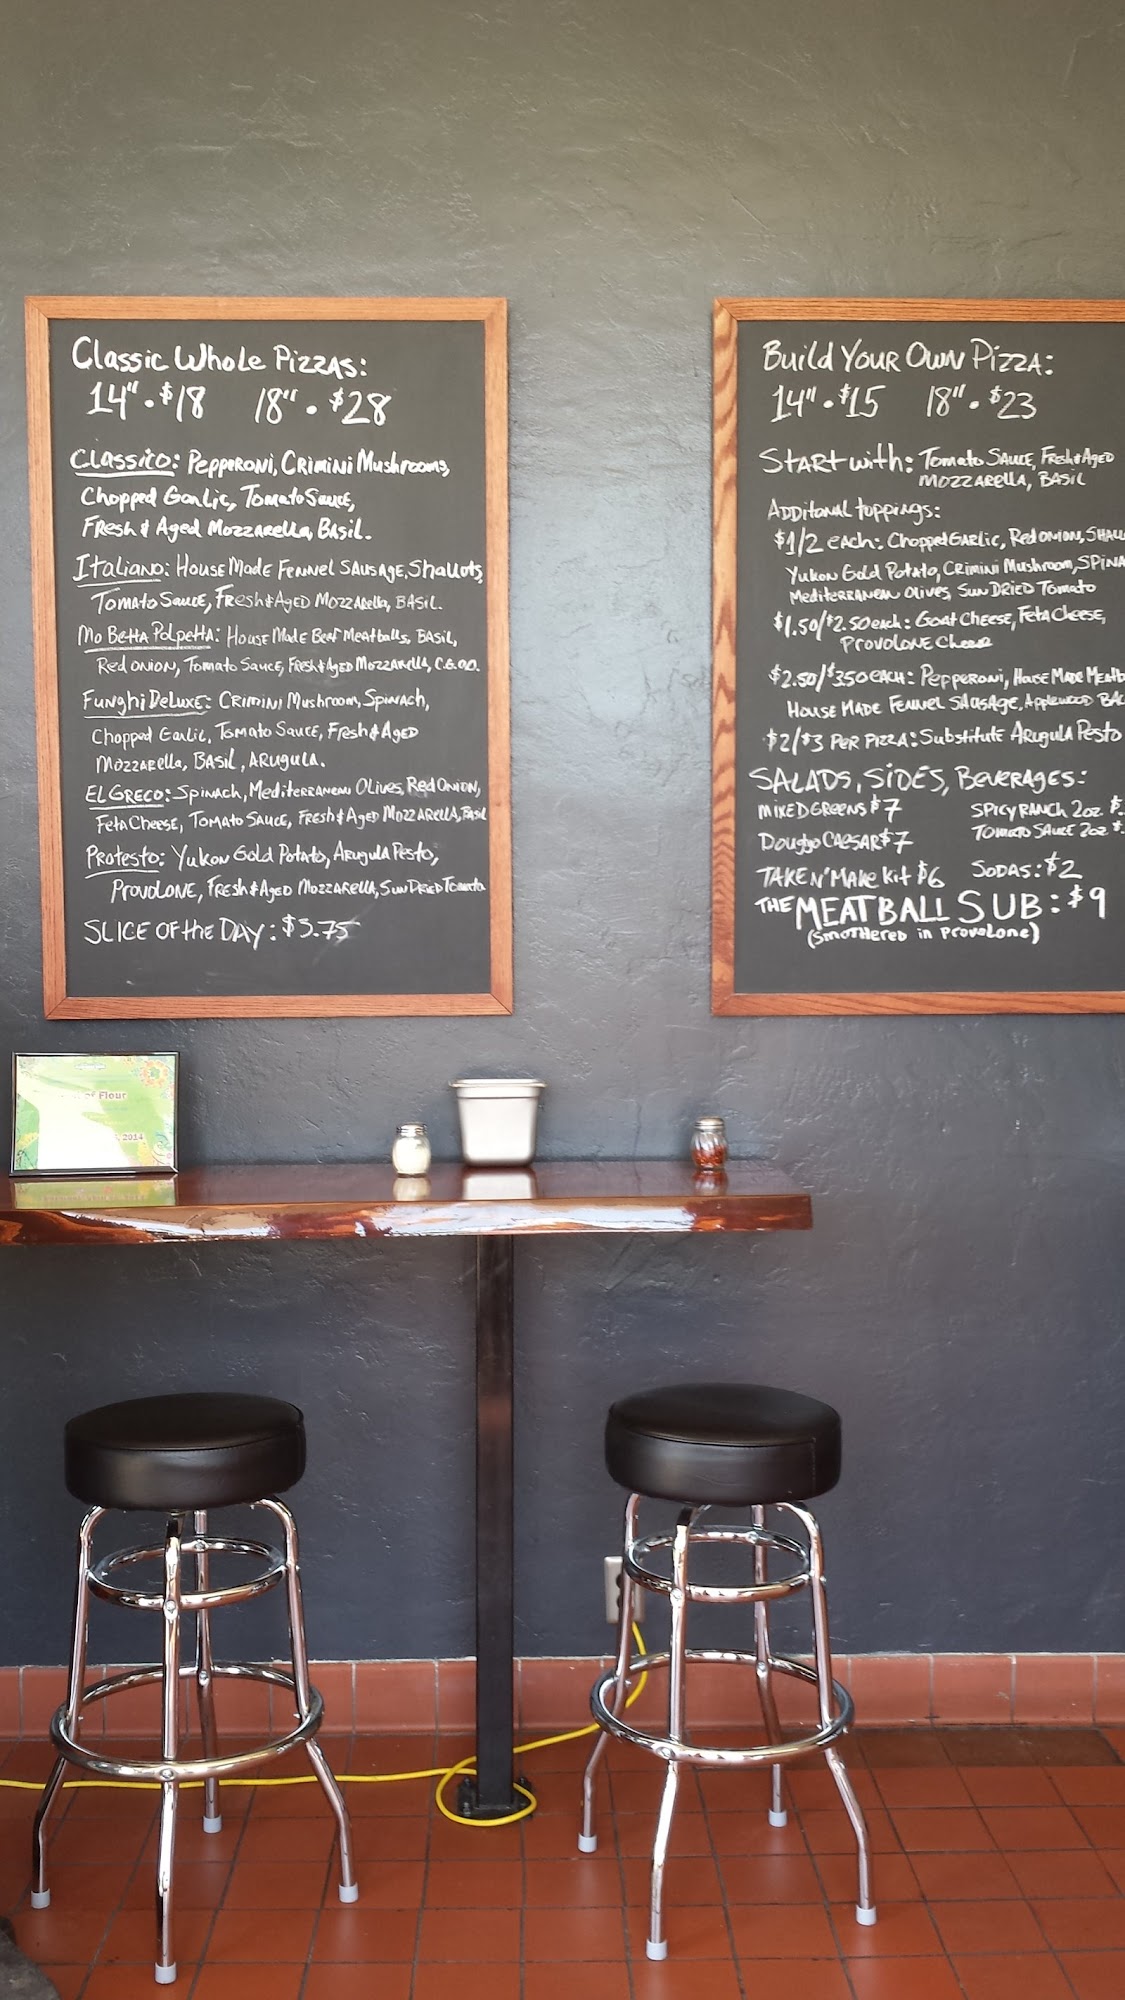 Classic Whole Pizzas:
14" • $18 18" • $28
Classico: Pepperoni, Crimini Mushrooms,
Chopped Garlic, Tomato Sauce,
Fresh & Aged Mozzarella, Basil.
Italiano: House Made Fennel Sausage, Shallots,
Tomato Sauce, Fresh & Aged Mozzarella, Basil.
Mo Betta Polpetta: House Made Beef Meatballs, Basil,
Red Onion, Tomato Sauce, Fresh & Aged Mozzarella, C.G.O.O.
Funghi Deluxe: Crimini Mushroom, Spinach,
Chopped Garlic, Tomato Sauce, Fresh & Aged
Mozzarella, Basil, Arugula.
El Greco: Spinach, Mediterranean Olives, Red Onion,
Feta Cheese, Tomato Sauce, Fresh & Aged Mozzarella, Basil
Protesto: Yukon Gold Potato, Arugula Pesto,
Provolone, Fresh & Aged Mozzarella, Sun Dried Tomato
Slice of the Day: $3.75
Build Your Own Pizza:
14" • $15 18" • $23
Start with: Tomato Sauce, Fresh & Aged
Mozzarella, Basil
Additonal toppings:
$1/2 each: Chopped Garlic, Red Onion, Shall
Yukon Gold Potato, Crimini Mushroom, Spina
Mediterranean Olives, Sun Dried Tomato
$1.50/$2.50 each: Goat Cheese, Feta Cheese,
Provolone Cheese
$2.50/$3.50 each: Pepperoni, House Made Meatb
House Made Fennel Sausage, Applewood Bac
$2/$3 per pizza: Substitute Arugula Pesto
Salads, Sides, Beverages:
Mixed Greens $7 Spicy Ranch 2oz. $.
Douggo Caesar $7 Tomato Sauce 2oz $.
Take N' Make Kit $6 Sodas: $2
The MEATBALL SUB: $9
(Smothered in Provolone)
of Flour
2014